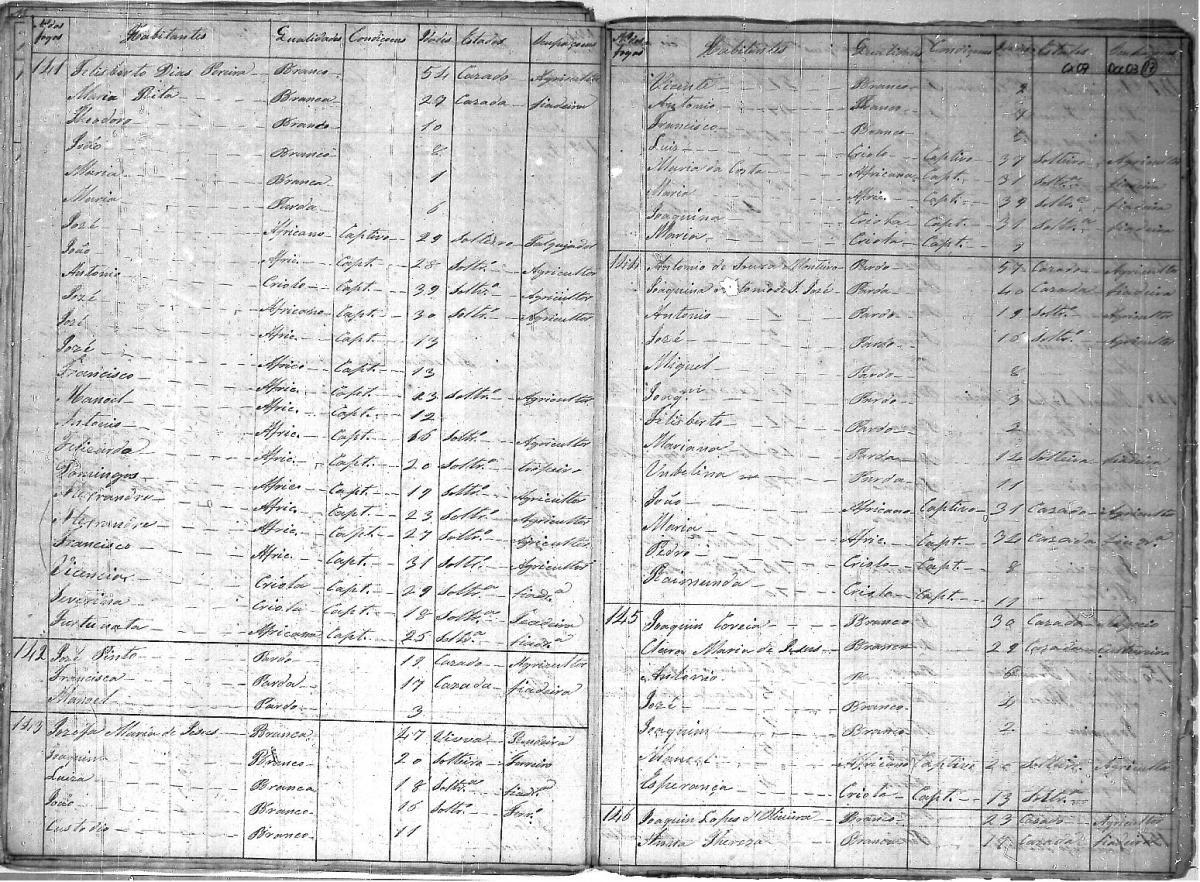 Nº dos fogos Habitantes Qualidades Condiçoens Idades Estados Ocupaçoens
141 Felisberto Dias Pereira Branco 54 Cazado Agricultor
Maria Rita Branca 27 Cazada fiadeira
Theodoro Branco 10
João Branco 8
Maria Branca 1
Maria Parda 6
José Africano Captivo 29 Solteiro
João Afric. Capt. 28 Soltrº Agricultor
Antonio Criolo Capt. 39 Soltrº Agricultor
José Africano Capt. 30 Soltrº Agricultor
José Afric. Capt. 13
José Afric. Capt. 13
Francisco Afric. Capt. 23 Soltrº Agricultor
Manoel Afric. Capt. 12
Antonio Afric. Capt. 16 Soltrº Agricultor
Felizarda Afric. Capt. 20 Soltrº
Domingos Afric. Capt. 19 Soltrº Agricultor
Alexandre Afric. Capt. 23 Soltrº Agricultor
Alexandre Afric. Capt. 27 Soltrº Agricultor
Francisco Afric. Capt. 31 Soltrº Agricultor
Criola Capt. 29 Soltrª fiadrª
Severina Criola Capt. 18 Soltrª
Fortunata Africana Capt. 25 Soltrª fiadrª
142 José Pinto Pardo 19 Cazado Agricultor
Francisca Parda 17 Cazada fiadeira
Manoel Pardo 3
143 Jozefa Maria de Jesus Branca 47 Viuva
Joaquim Branco 20 Solteiro
Luiza Branca 18 Soltrª fiadrª
João Branco 16 Soltrº
Custodio Branco 11
Nº dos fogos Habitantes Qualidades Condiçoens Estados
Vicente Branco 2
Antonio Branco
Francisco Branco
Luis Criolo Captivo 37 Solteiro Agricultor
Maria da Costa Africana Capt. 31 Soltrª fiadeira
Maria Afric. Capt. 39 Soltrª fiadeira
Joaquina Criola Capt. 31 Soltrª fiadeira
Maria Criola Capt. 2
144 Antonio de Souza Monteiro Pardo 57 Cazado Agricultor
Joaquina S. José Parda 40 Cazada fiadeira
Antonio Pardo 19 Soltrº Agricultor
José Pardo 16 Soltrº Agricultor
Miguel Pardo 8
Joaqᵐ Pardo 3
Felisberto Pardo 2
Mariana Parda 14 Solteira fiadeira
Umbelina Parda 11
João Africano Captivo 31 Cazado Agricultor
Maria Afric. Capt. 34 Cazada
Pedro Criolo Capt. 8
Raimunda Criola Capt. 11
145 Joaquim Correia Branco 30 Cazado
Clara Maria de Jesus Branca 29 Cazada
Antonio
José Branco 4
Joaquim Branco 2
Manoel Africano Captivo 20 Solteiro Agricultor
Esperança Criola Capt. 13 Soltrª
146 Joaquim Lopes d'Oliveira Branco 23 Cazado Agricultor
Thereza Branca Cazada fiadeira